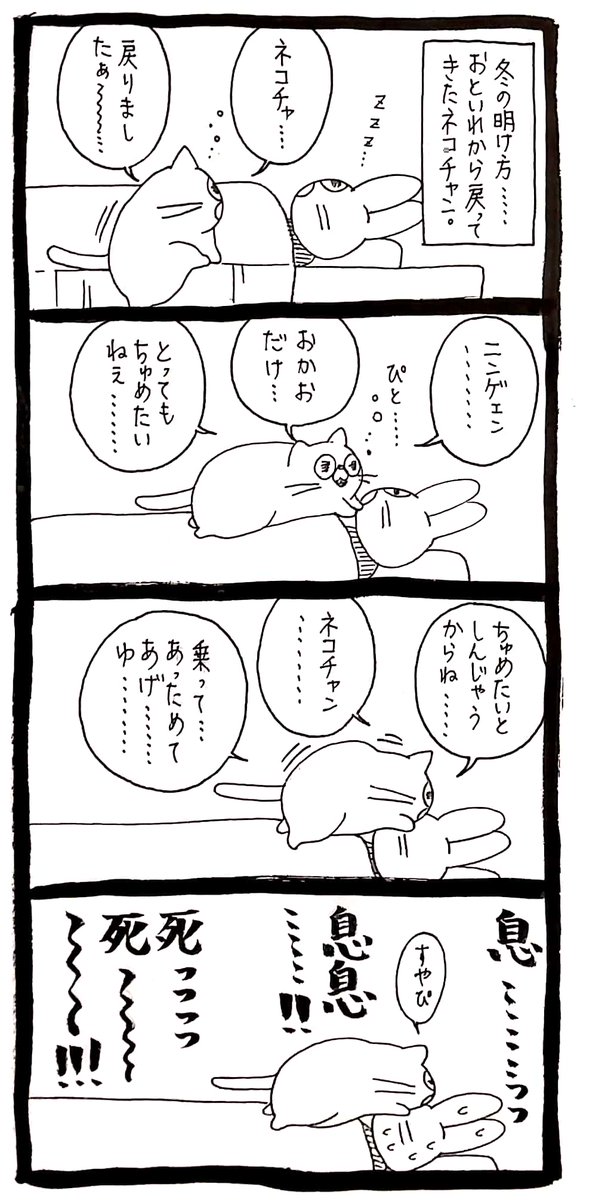 冬の明け方……
おといれから戻って
きたネコチャン。
zzz…
ネコチャ……
戻りまし
たぁ〜〜〜…
ニンゲェン
………
ぴと……
おかお
だけ…
とっても
ちゅめたい
ねぇ………
ちゅめたいと
しんじゃう
からね……
ネコチャン
………
乗って…
あっためて
あげ………
ゆ………
息ここここっっ
すやぴ
息息
こここ!!
死っっっっ
死〜〜〜
〜〜〜〜!!!